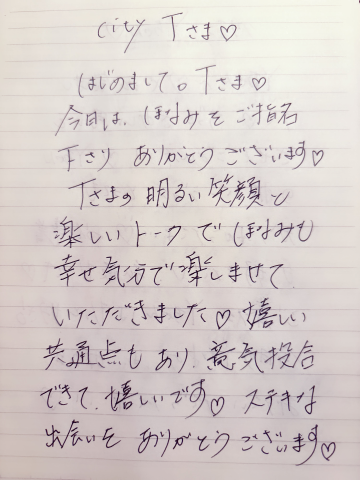 city Tさま♡
はじめまして。Tさま♡
今日は、ほなみをご指名
下さり ありがとうございます♡
Tさまの明るい笑顔と
楽しいトークでほなみも
幸せ気分で楽しませて
いただきました♡嬉しい
共通点もあり、意気投合
できて、嬉しいです♡ステキな
出会いを ありがとうございます♡